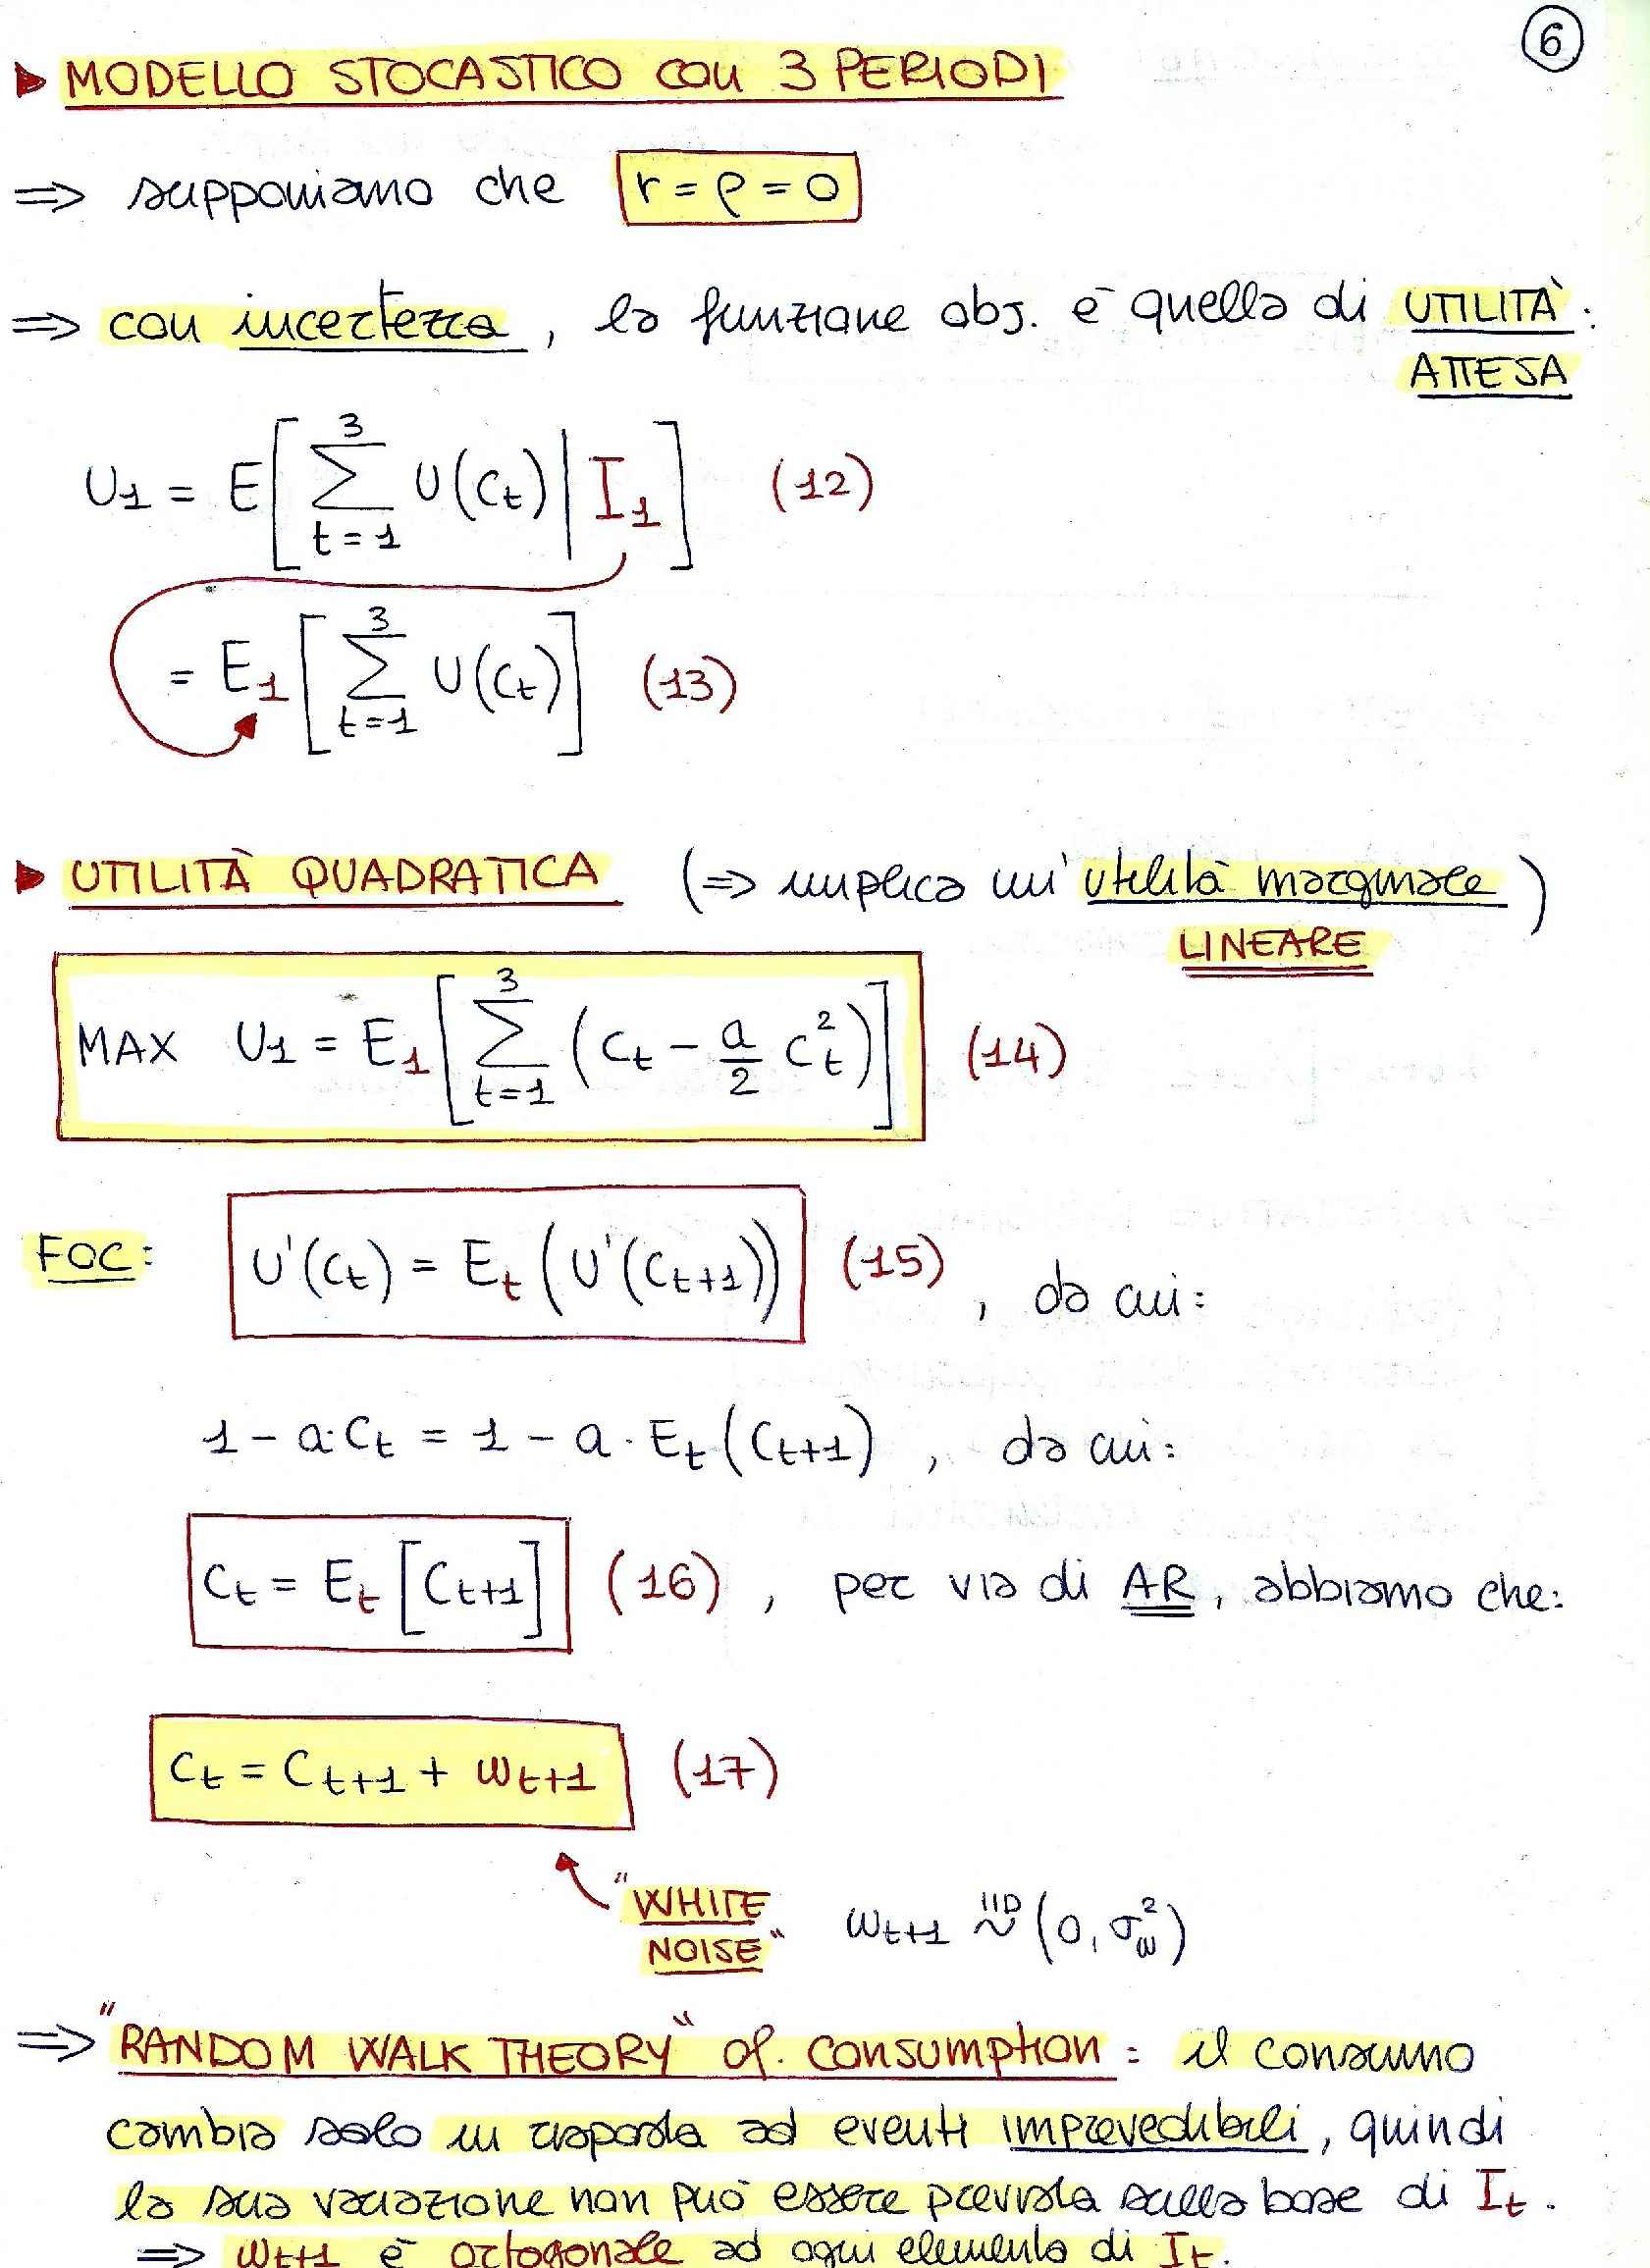 6
▶ MODELLO STOCASTICO con 3 PERIODI
⇒ supponiamo che r = ρ = 0
⇒ con incertezza, la funzione obj. è quella di UTILITÀ :
ATTESA
U₁ = E[∑_{t=1}^{3} U(Cₜ) | I₁] (12)
= E₁[∑_{t=1}^{3} U(Cₜ)] (13)
▶ UTILITÀ QUADRATICA (⇒ implica un' utilità marginale)
LINEARE
MAX U₁ = E₁[∑_{t=1}^{3} (Cₜ − a/2 Cₜ²)] (14)
FOC: U'(Cₜ) = Eₜ(U'(Cₜ₊₁)) (15) , da cui:
1 − a·Cₜ = 1 − a · Eₜ(Cₜ₊₁) , da cui:
Cₜ = Eₜ[Cₜ₊₁] (16) , per via di AR, abbiamo che:
Cₜ = Cₜ₊₁ + ωₜ₊₁ (17)
"WHITE
NOISE" ωₜ₊₁ ~ᴵᴵᴰ (0, σ²_ω)
⇒ "RANDOM WALK THEORY" of. consumption : il consumo
cambia solo in risposta ad eventi imprevedibili, quindi
la sua variazione non può essere prevista sulla base di Iₜ.
⇒ ωₜ₊₁ è ortogonale ad ogni elemento di Iₜ.